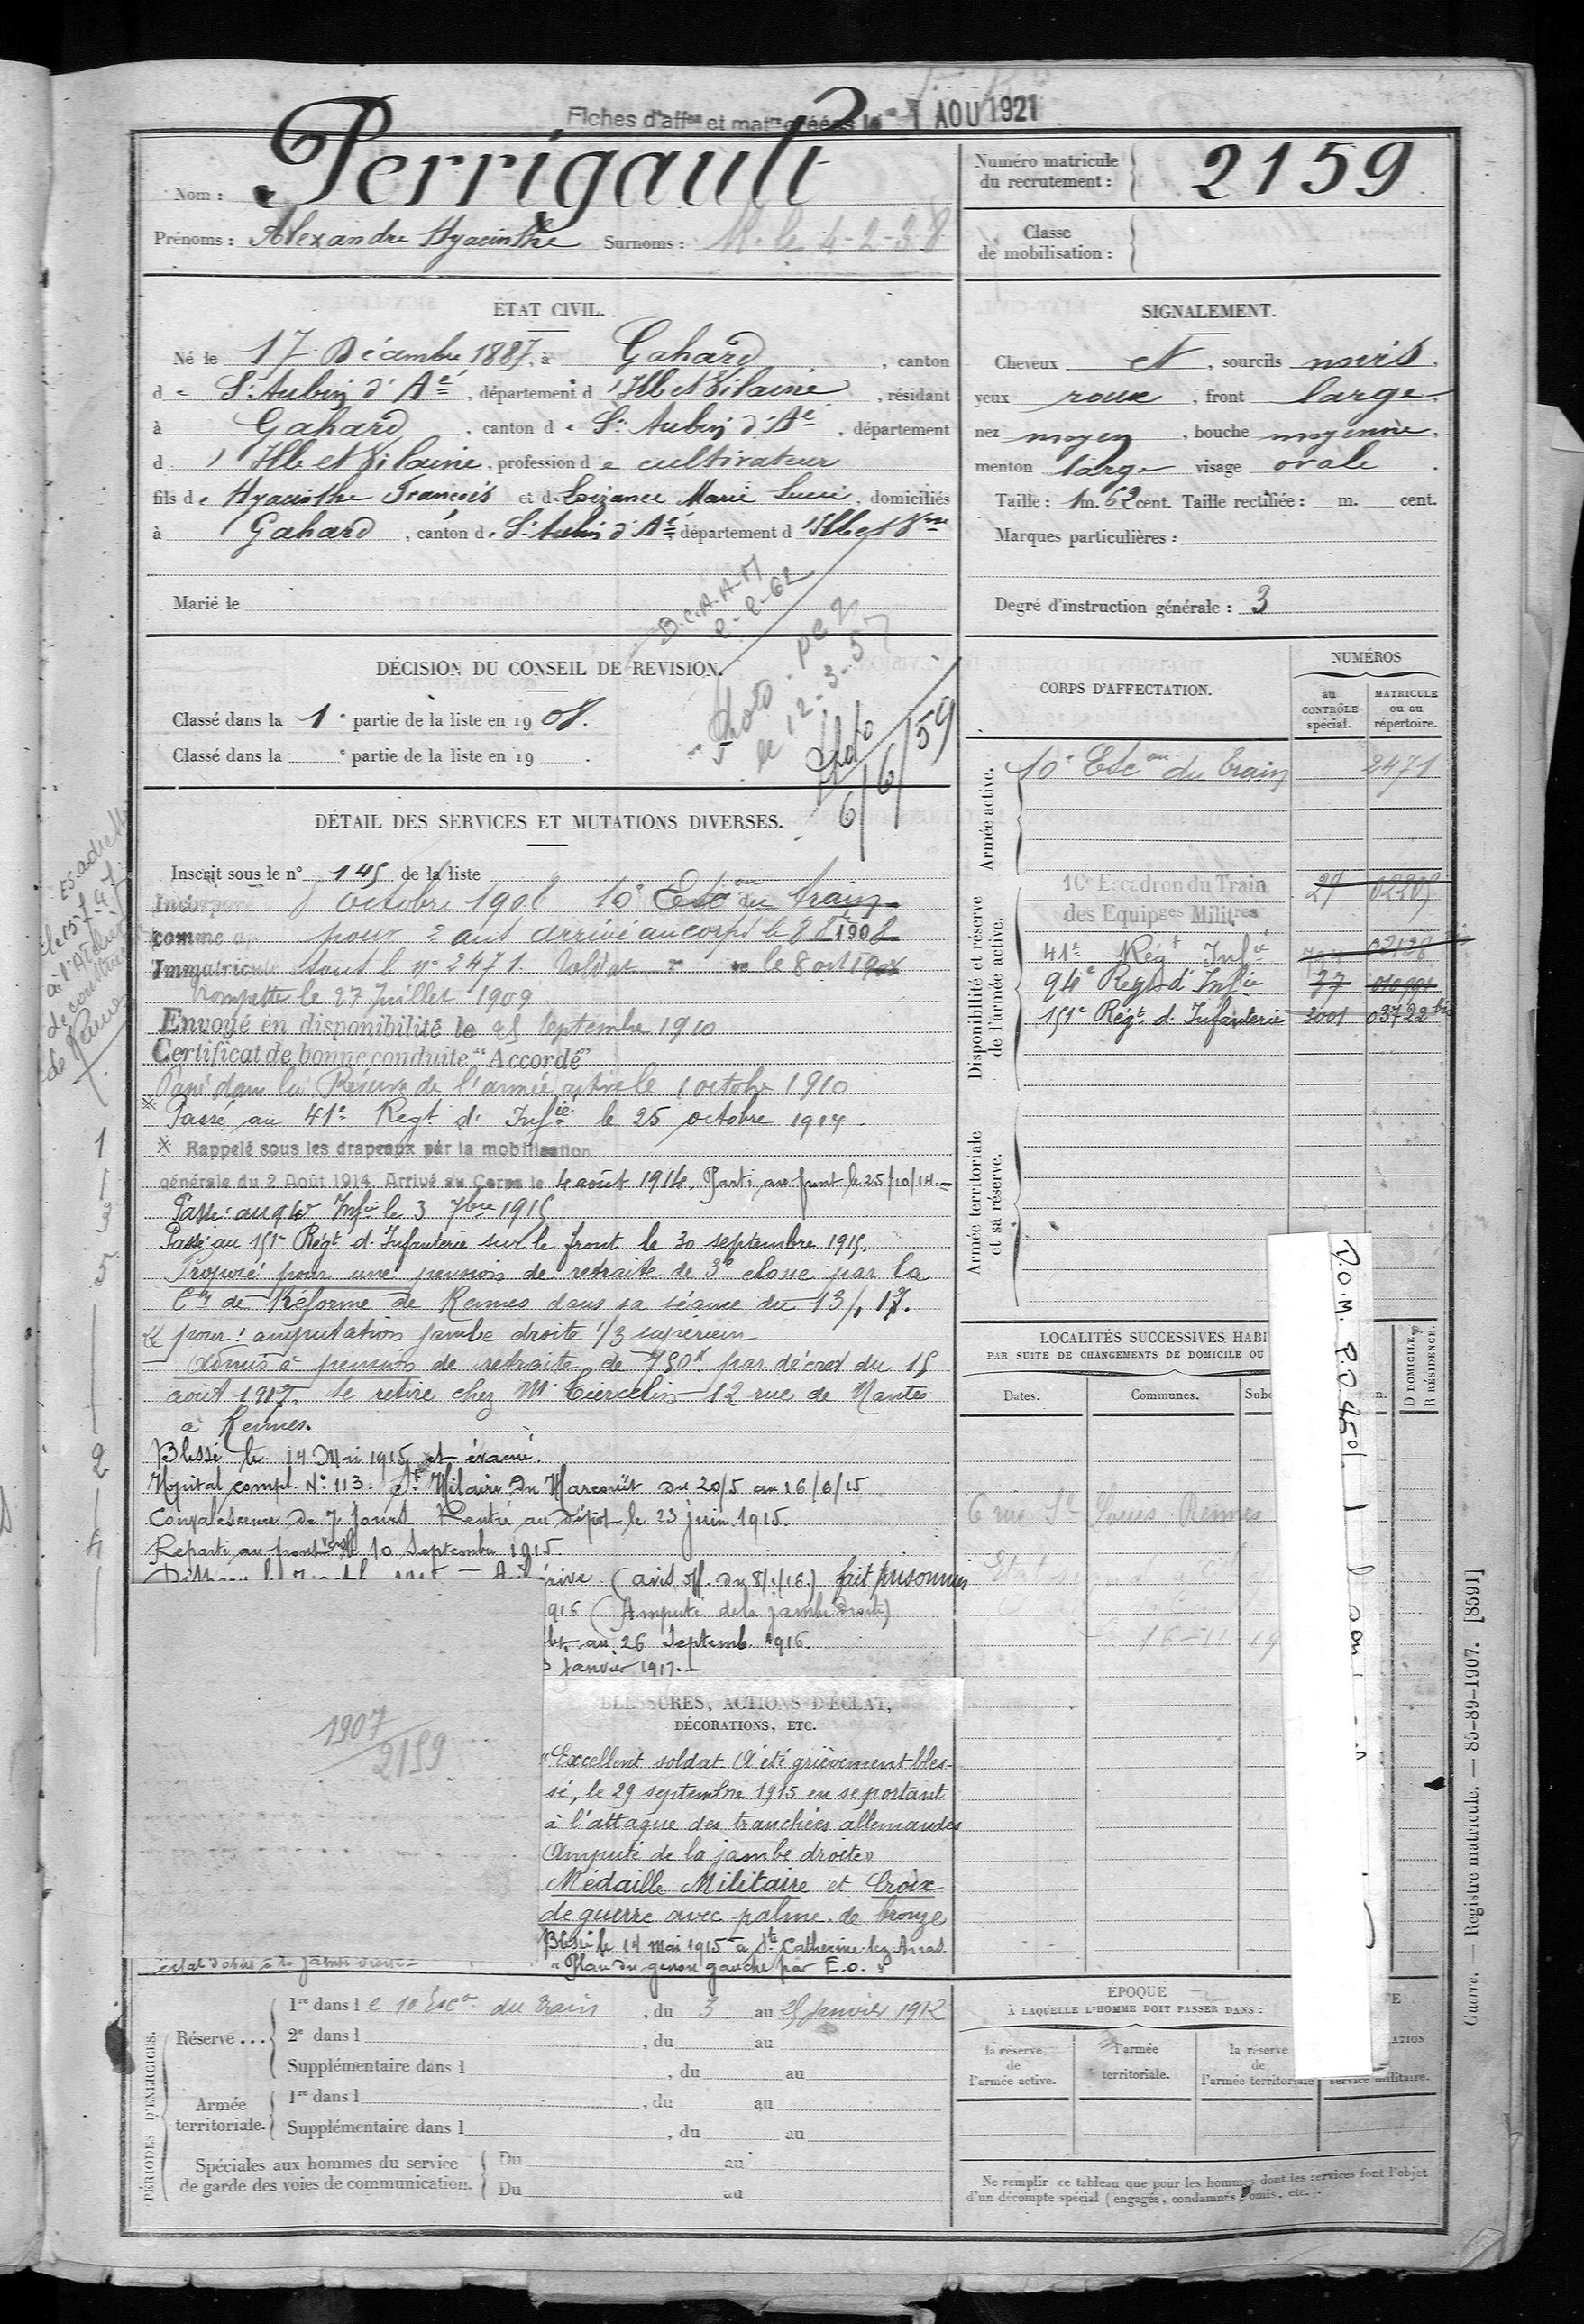 Fiches d'affon et matre créées le 1 AOU 1921
Nom : Perrigault
Prénoms : Alexandre Hyacinthe Surnoms : M. le 4-2-38
Numéro matricule du recrutement : 2159
Classe de mobilisation :
ÉTAT CIVIL.
Né le 17 Décembre 1887, à Gahard, canton
de St Aubin d'Aé, département d'Ille et Vilaine, résidant
à Gahard, canton de St Aubin d'Aé, département
d'Ille et Vilaine, profession de cultivateur
fils de Hyacinthe François et de Loizance Marie Lucie, domiciliés
à Gahard, canton de St Aubin d'Aé, département d'Ille et Vne
Marié le
B.C.A.A.M
Photo
le 12-3-57
Photo
6/6/59
SIGNALEMENT.
Cheveux et, sourcils noirs,
yeux roux, front large,
nez moyen, bouche moyenne,
menton large visage ovale.
Taille : 1m. 62 cent. Taille rectifiée : m. cent.
Marques particulières :
Degré d'instruction générale : 3
DÉCISION DU CONSEIL DE REVISION.
Classé dans la 1e partie de la liste en 1908.
Classé dans la e partie de la liste en 19 .
DÉTAIL DES SERVICES ET MUTATIONS DIVERSES.
Inscrit sous le n° 145 de la liste
Incorporé 8 octobre 1908 10e Escon du train
comme ap pour 2 ans arrivé au corps le 8 8 1908
Immatriculé sous le n° 2471. Soldat le 8 oct 1908
Trompette le 27 Juillet 1909
Envoyé en disponibilité le 25 Septembre 1910
Certificat de bonne conduite "Accordé"
Passé dans la Réserve de l'armée active le 1 octobre 1910
x Passé au 41e Regt d'Infie le 25 octobre 1914.
x Rappelé sous les drapeaux par la mobilisation
générale du 2 Août 1914. Arrivé au Corps le 4 août 1914. Parti au front le 25/10/14.
Passé au 94e Infie le 3 7bre 1915
Passé au 151e Régt d'Infanterie sur le front le 30 septembre 1915.
Proposé pour une pension de retraite de 3e classe par la
Con de Réforme de Rennes dans sa séance du 13/1 17.
pour : amputation jambe droite 1/3 supérieur
Admis à pension de retraite de 750f par décret du 15
août 1917. Se retire chez Mr Ciercelin 12 rue de Nantes
à Rennes.
Blessé le 14 Mai 1915 et évacué.
Hôpital compl. N° 113. St Hilaire du Harcouët du 20/5 au 16/6/15
Convalescence de 7 jours. Rentré au dépôt le 23 juin 1915.
Reparti au front vers le 10 Septembre 1915
rive (avis off. du 8/1/16.) fait prisonnier
916 (Amputé de la jambe droite)
au 26 Septemb. 1916.
3 Janvier 1917.
1907
2159
BLESSURES, ACTIONS D'ÉCLAT,
DÉCORATIONS, ETC.
"Excellent soldat. A été grièvement bles-
sé, le 29 septembre 1915 en se portant
à l'attaque des tranchées allemandes
Amputé de la jambe droite"
Médaille Militaire et Croix
de guerre avec palme de bronze
Blessé le 14 mai 1915 à Ste Catherine-lez-Arras
"Plaie du genou gauche par E.O."
éclat d'obus à la jambe droite
CORPS D'AFFECTATION.
NUMÉROS
au CONTRÔLE spécial.
MATRICULE ou au répertoire.
Armée active.
10e Escon du train 2471
Disponibilité et réserve de l'armée active.
10e Escadron du Train 29 02205
des Equipges Militres
41e Régt Infie 02128
94e Regt d'Infie 27
151e Régt d'Infanterie 3001 03722 bis
Armée territoriale et sa réserve.
LOCALITÉS SUCCESSIVES HABI
PAR SUITE DE CHANGEMENTS DE DOMICILE OU
Dates. Communes. Subd n. D DOMICILE. R RÉSIDENCE.
6 rue St Louis Rennes
16-11 19
D.O.M. P.O 4501
PÉRIODES D'EXERCICES.
Réserve ... 1re dans le 10 Escon du train, du 3 au 25 Janvier 1912
2e dans l , du au
Supplémentaire dans l , du au
Armée territoriale. 1re dans l , du au
Supplémentaire dans l , du au
Spéciales aux hommes du service de garde des voies de communication. Du au
Du au
ÉPOQUE
À LAQUELLE L'HOMME DOIT PASSER DANS :
la réserve de l'armée active.
l'armée territoriale.
la réserve de l'armée territoriale
service militaire.
Ne remplir ce tableau que pour les hommes dont les services font l'objet
d'un décompte spécial (engagés, condamnés, omis, etc.).
Guerre. — Registre matricule. — 85-89-1907. [8591]
1
3
5
2
4